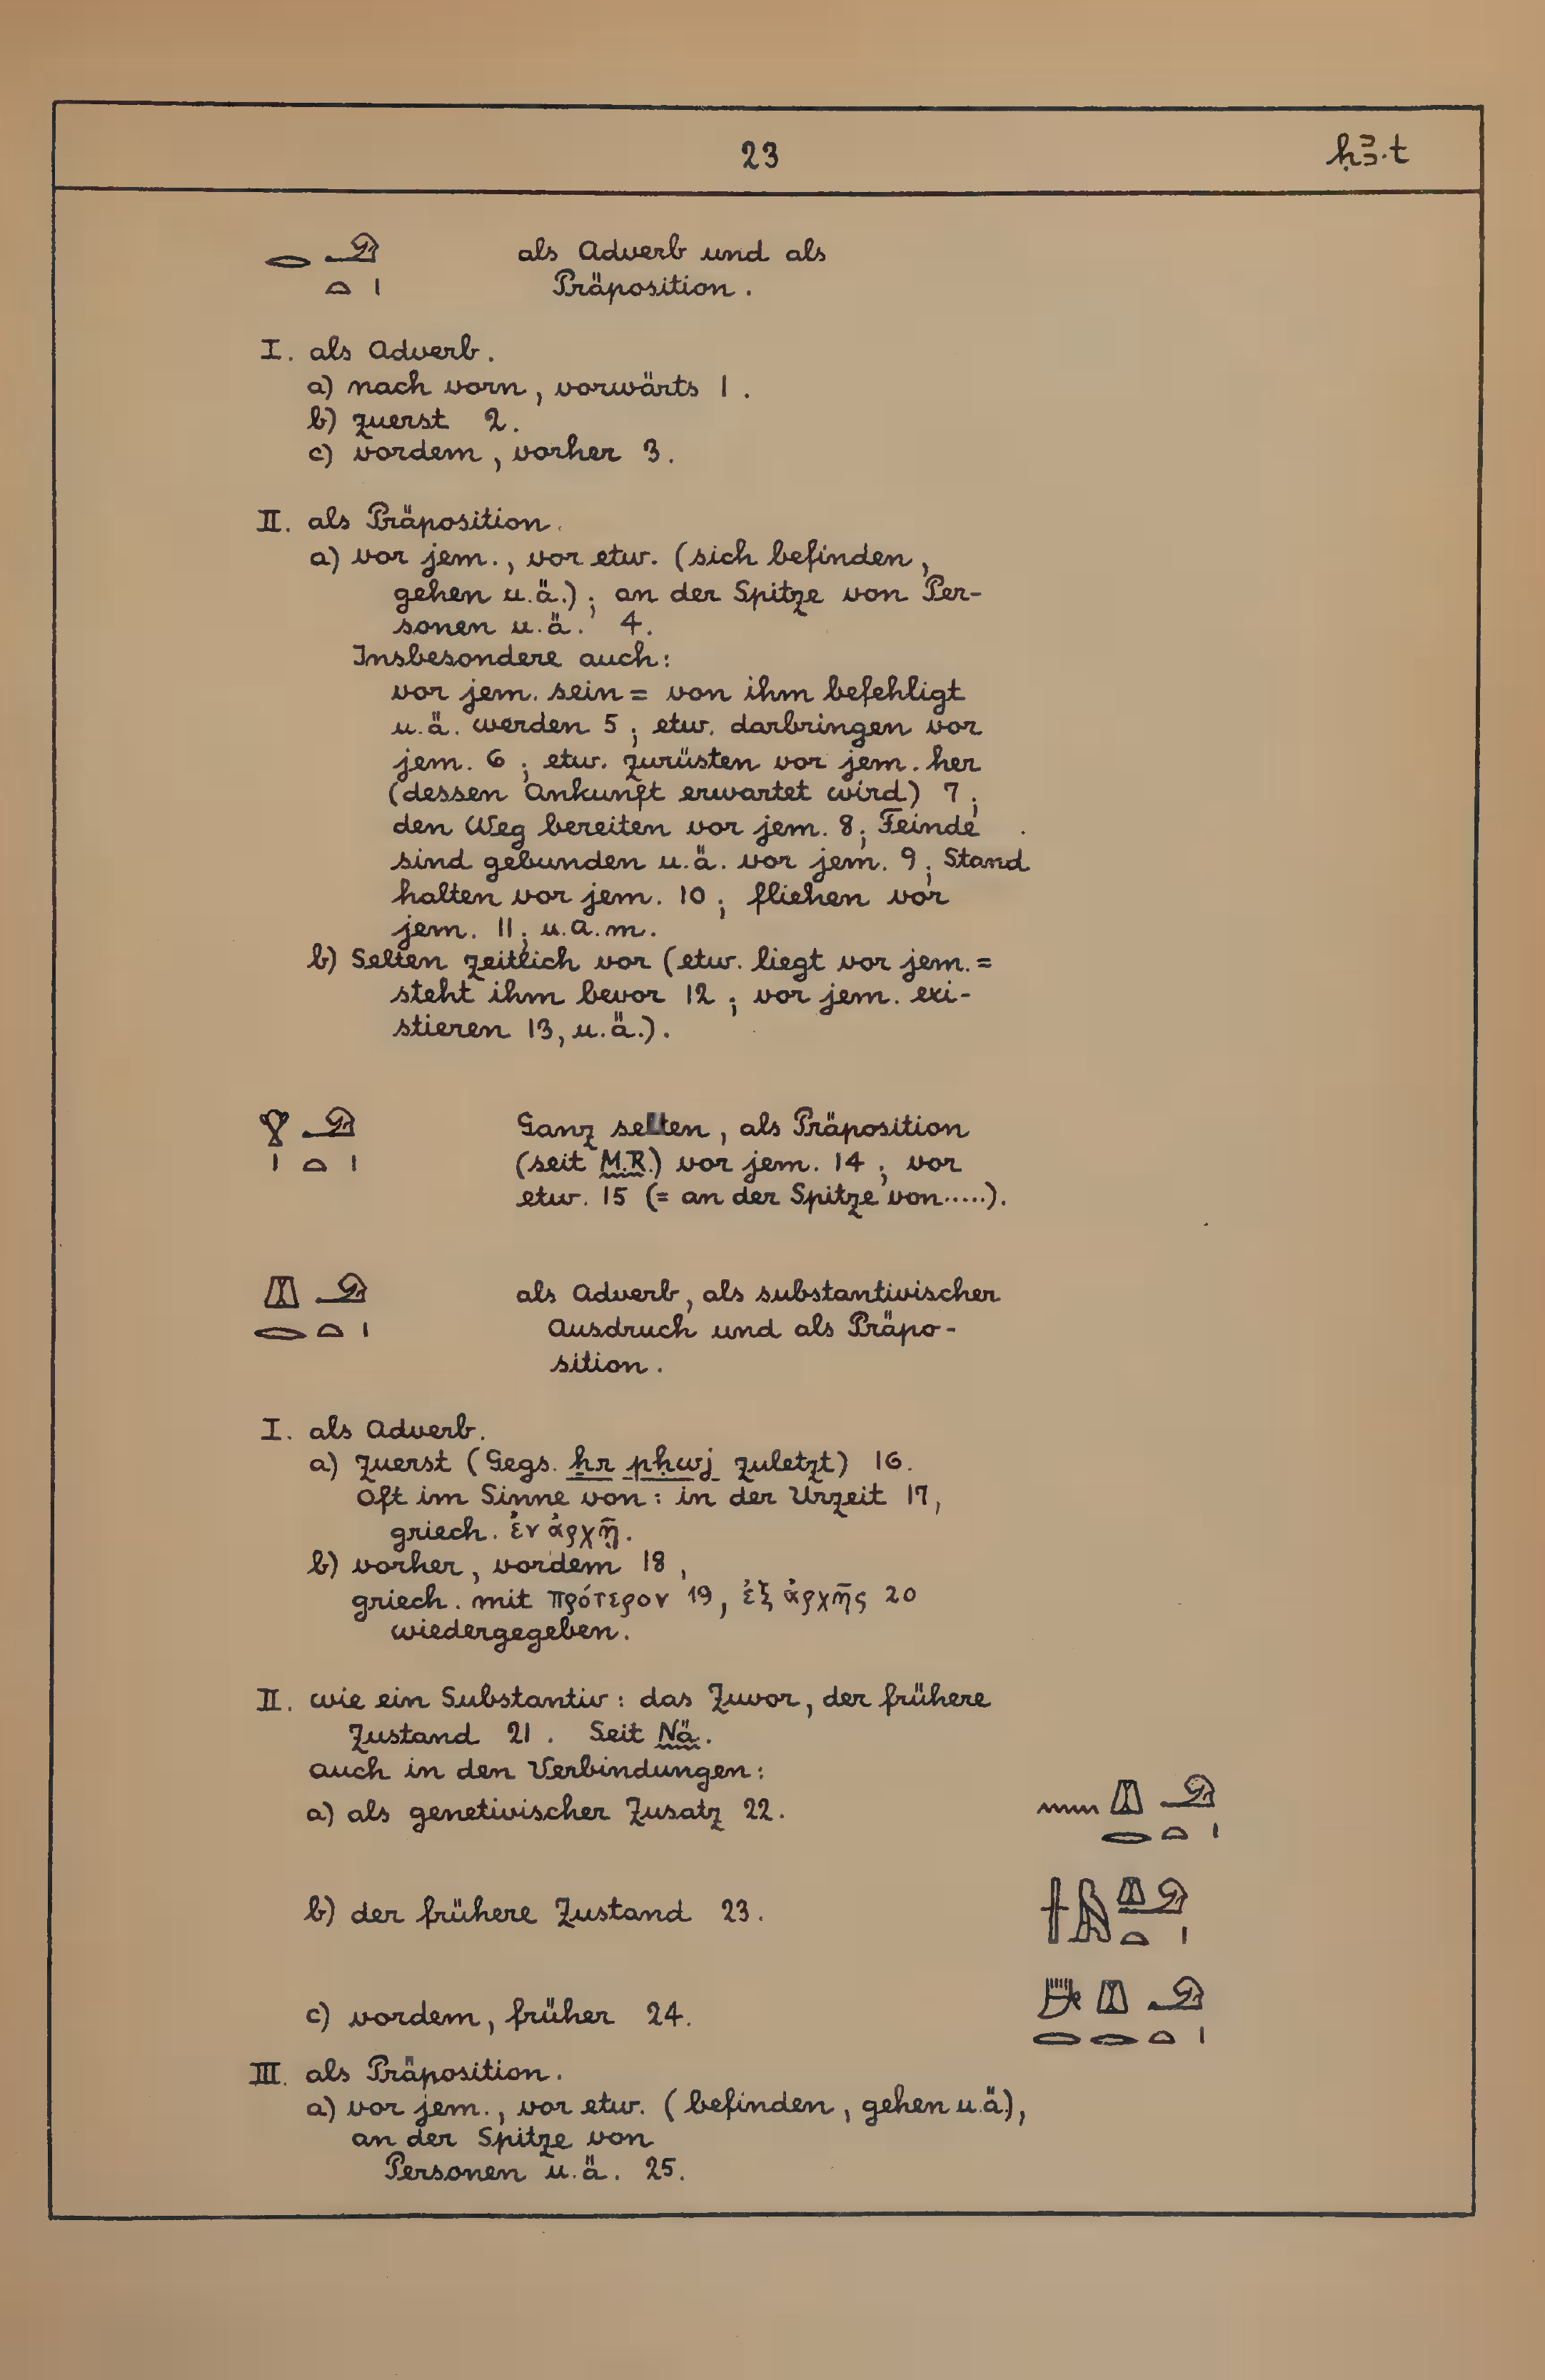 23 ḥꜣ.t
𓂋𓄂𓏏𓏤 als Adverb und als
Präposition.
I. als Adverb.
a) nach vorn, vorwärts 1.
b) zuerst 2.
c) vordem, vorher 3.
II. als Präposition.
a) vor jem., vor etw. (sich befinden,
gehen u.ä.); an der Spitze von Per-
sonen u.ä. 4.
Insbesondere auch:
vor jem. sein = von ihm befehligt
u.ä. werden 5; etw. darbringen vor
jem. 6; etw. zurüsten vor jem. her
(dessen Ankunft erwartet wird) 7;
den Weg bereiten vor jem. 8; Feinde
sind gebunden u.ä. vor jem. 9; Stand
halten vor jem. 10; fliehen vor
jem. 11; u.a.m.
b) Selten zeitlich vor (etw. liegt vor jem. =
steht ihm bevor 12; vor jem. exi-
stieren 13, u.ä.).
𓁷𓏤𓄂𓏏𓏤 Ganz selten, als Präposition
(seit M.R.) vor jem. 14; vor
etw. 15 (= an der Spitze von.....).
𓐍𓂋𓄂𓏏𓏤 als Adverb, als substantivischer
Ausdruch und als Präpo-
sition.
I. als Adverb.
a) zuerst (Gegs. ẖr pḥwj zuletzt) 16.
oft im Sinne von: in der Urzeit 17,
griech. ἐν ἀρχῇ.
b) vorher, vordem 18,
griech. mit πρότερον 19, ἐξ ἀρχῆς 20
wiedergegeben.
II. wie ein Substantiv: das Zuvor, der frühere
Zustand 21. Seit Nä.
auch in den Verbindungen:
a) als genetivischer Zusatz 22.
b) der frühere Zustand 23.
c) vordem, früher 24.
III. als Präposition.
a) vor jem., vor etw. (befinden, gehen u.ä.),
an der Spitze von
Personen u.ä. 25.